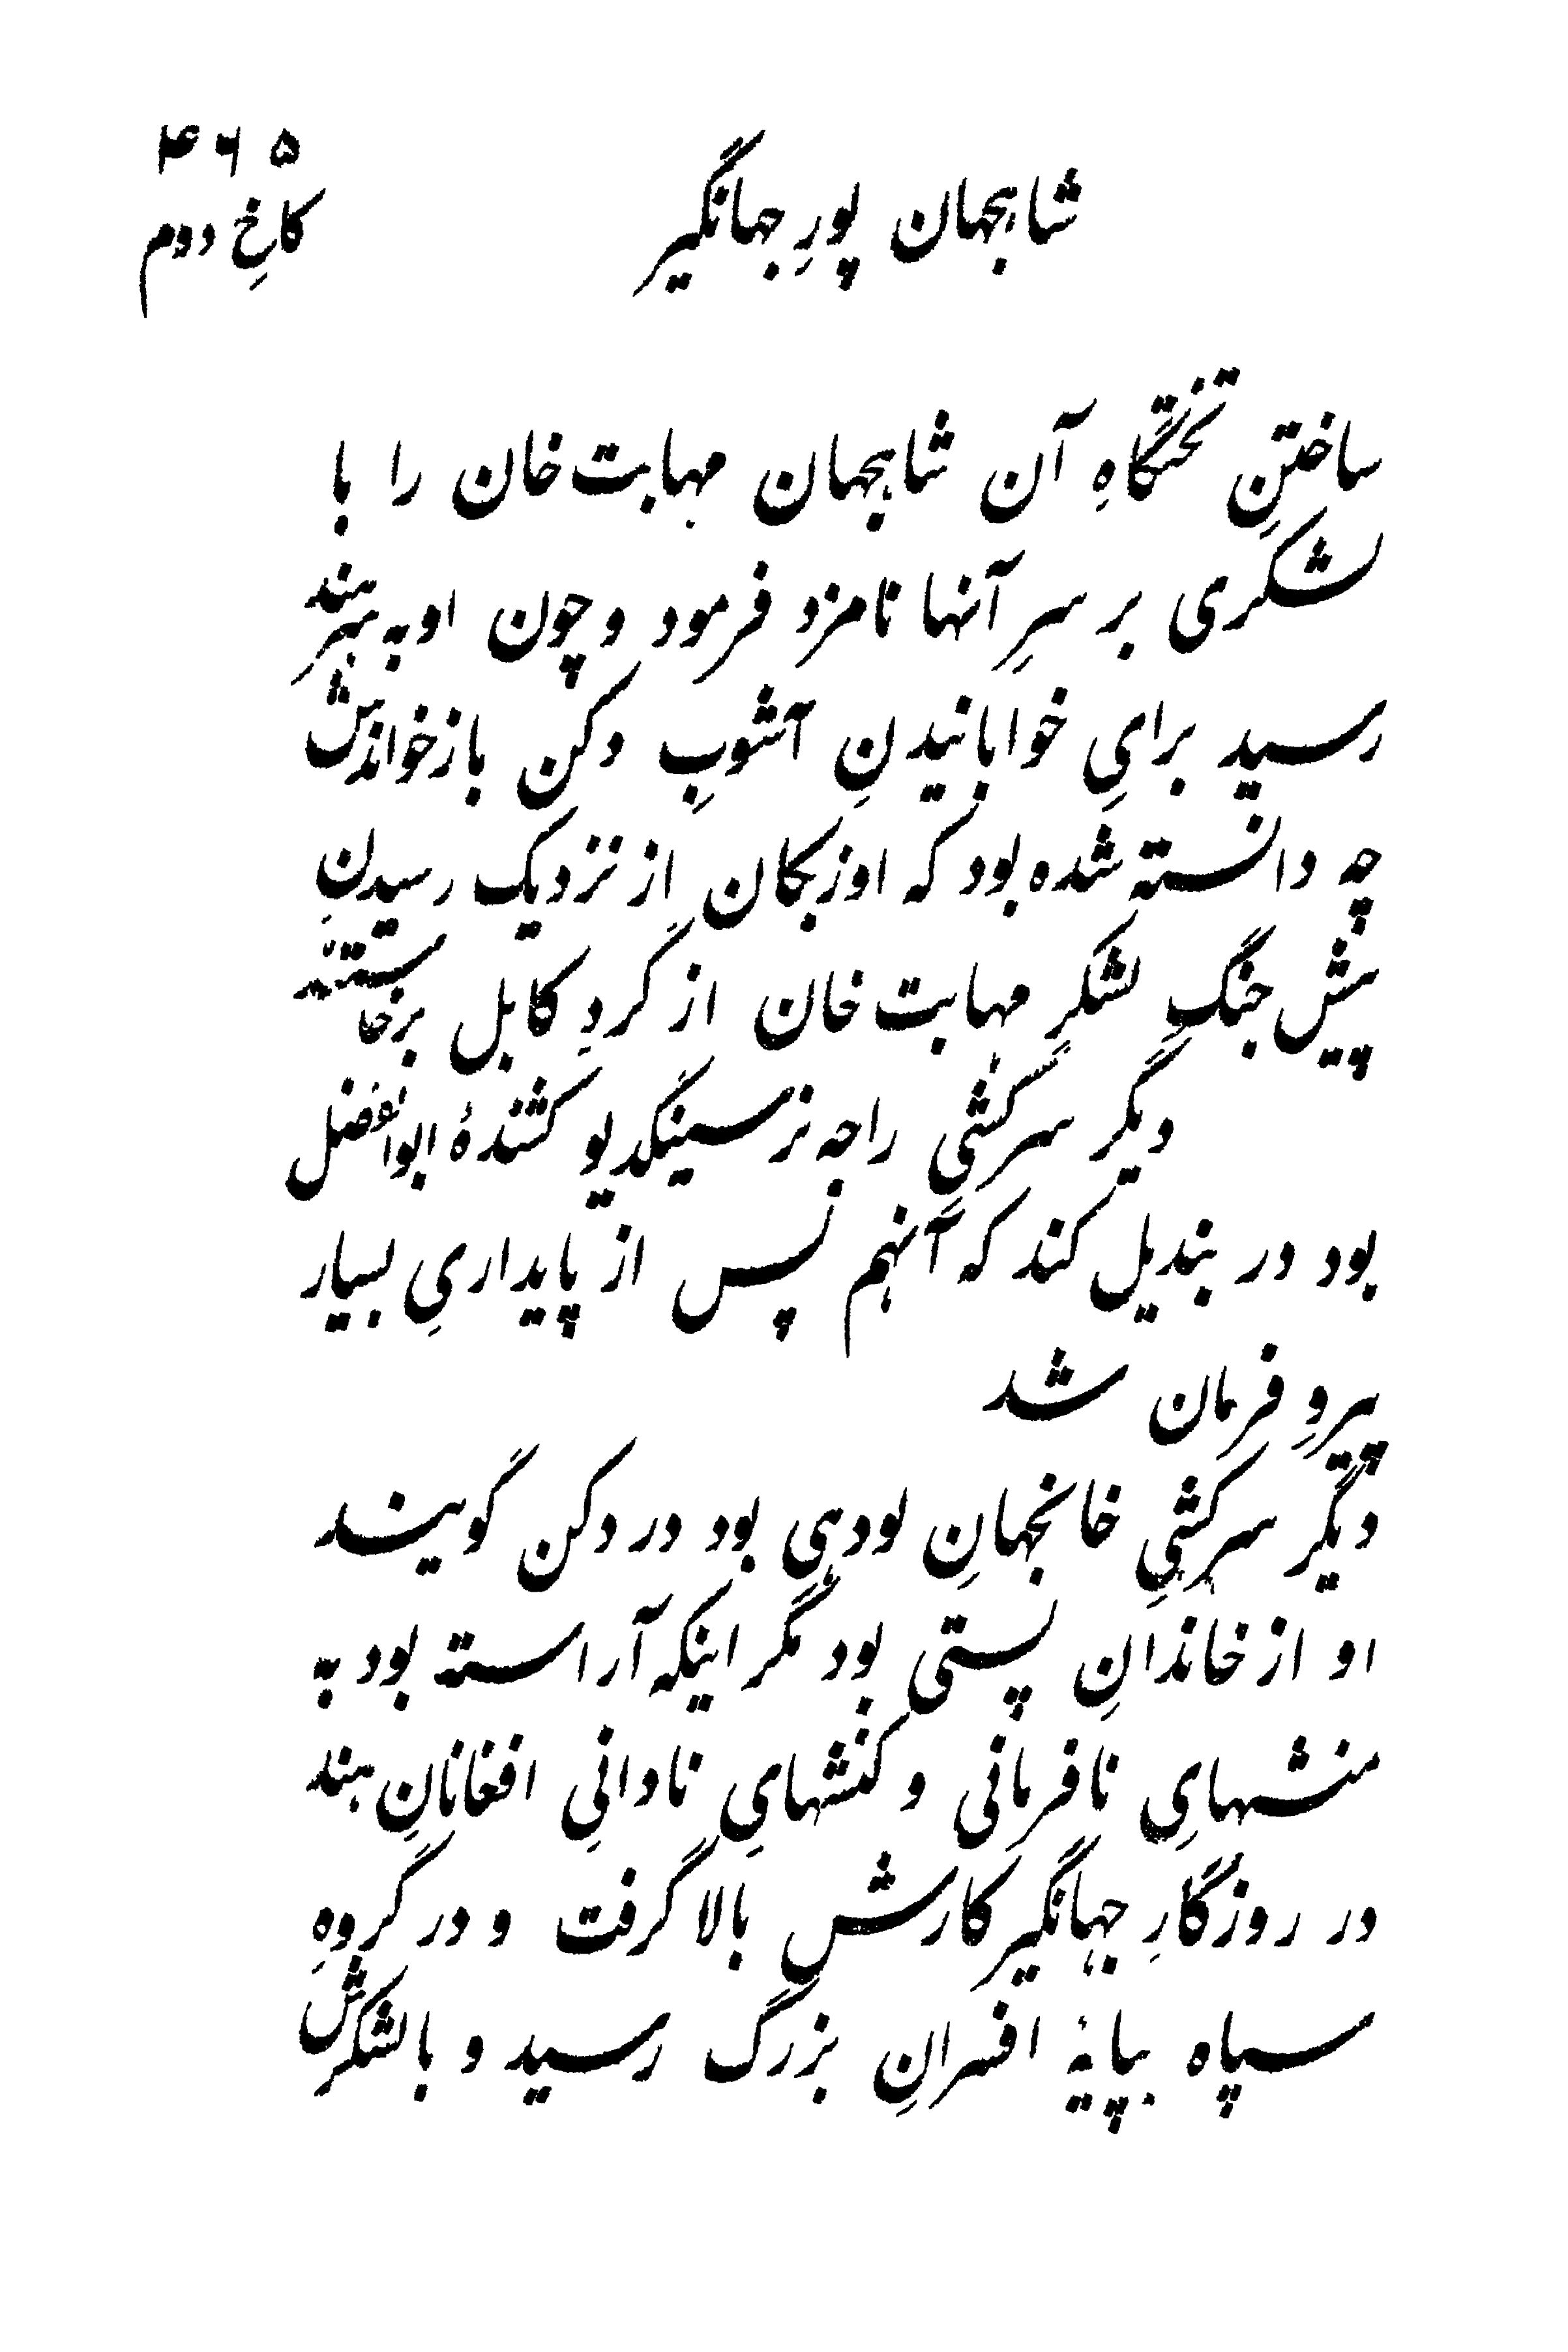 ۴۶۵
شاہجہان پورِ جہانگیر
کاخِ دوم
ساختنِ تختگاہِ آن شاہجہان مہابت خان را با
لشکری بر سرِ آنہا نامزد فرمود و چون او بہ سرہند
رسید برایِ خوابانیدنِ آشوبِ دکن بازخواندش
چہ دانستہ شدہ بود کہ اوزبکان از نزدیک رسیدنِ
پیش جنگِ لشکرِ مہابت خان از گردِ کابل برخاستند
دیگر سرکشیِ راجہ نرسینگدیو کشندۂ ابوالفضل
بود در بندیل کند کہ آنہم پس از پایداریِ بسیار
پیروِ فرمان شد
دیگر سرکشیِ خانجہانِ لودی بود در دکن گویند
او از خاندانِ پستی بود مگر اینکہ آراستہ بود بہ
منشہایِ نافرمانی و کنشہایِ نادانیِ افغانانِ ہند
در روزگارِ جہانگیر کارش بالا گرفت و در گروہِ
سپاہ بپایۂ افسرانِ بزرگ رسید و با لشکرش